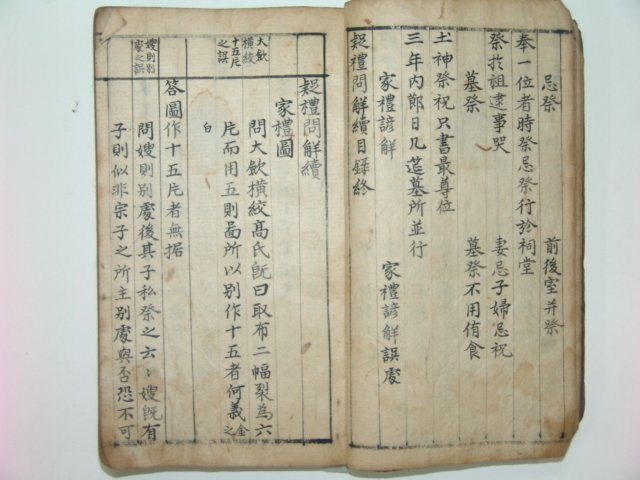 忌祭　前後室并祭
奉一位者時祭忌祭行於祠堂
祭考妣逮事哭　妻忌子婦忌祝
墓祭　墓祭不用侑食
土神祭祝只書最尊位
三年内節日几筵墓所並行
家禮諺解　家禮諺解誤處
疑禮問解續目録終
疑禮問解續
家禮圖
大斂橫絞十五片之誤
問大斂橫絞髙氏旣曰取布二幅裂為六
片而用五則圖所以別作十五者何義金之
白
答圖作十五片者無据
嫂則別處之誤
問嫂則別處後其子私祭之云云嫂旣有
子則似非宗子之所主別處與否恐不可